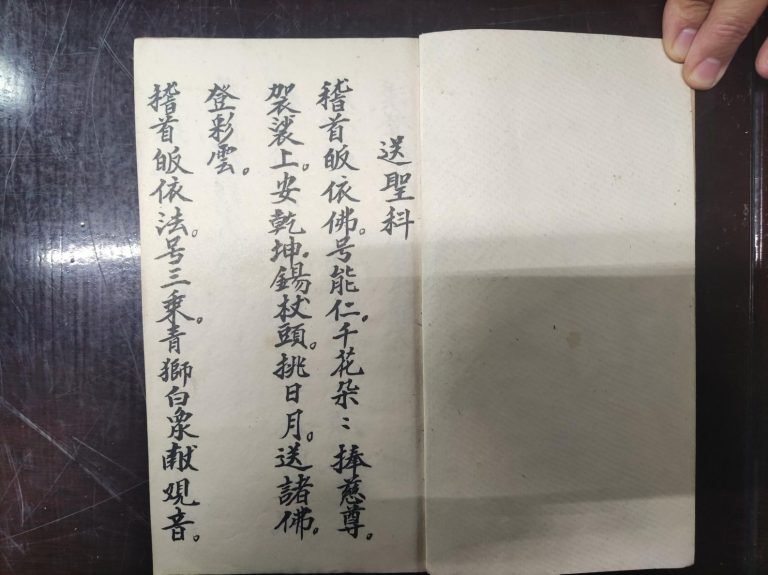 送聖科
稽首皈依佛。号能仁。千花朶〻捧慈尊。
袈裟上。安乾坤。錫杖頭。挑日月。送諸佛。
登彩雲。
稽首皈依法。号三乘。青獅白象献觀音。